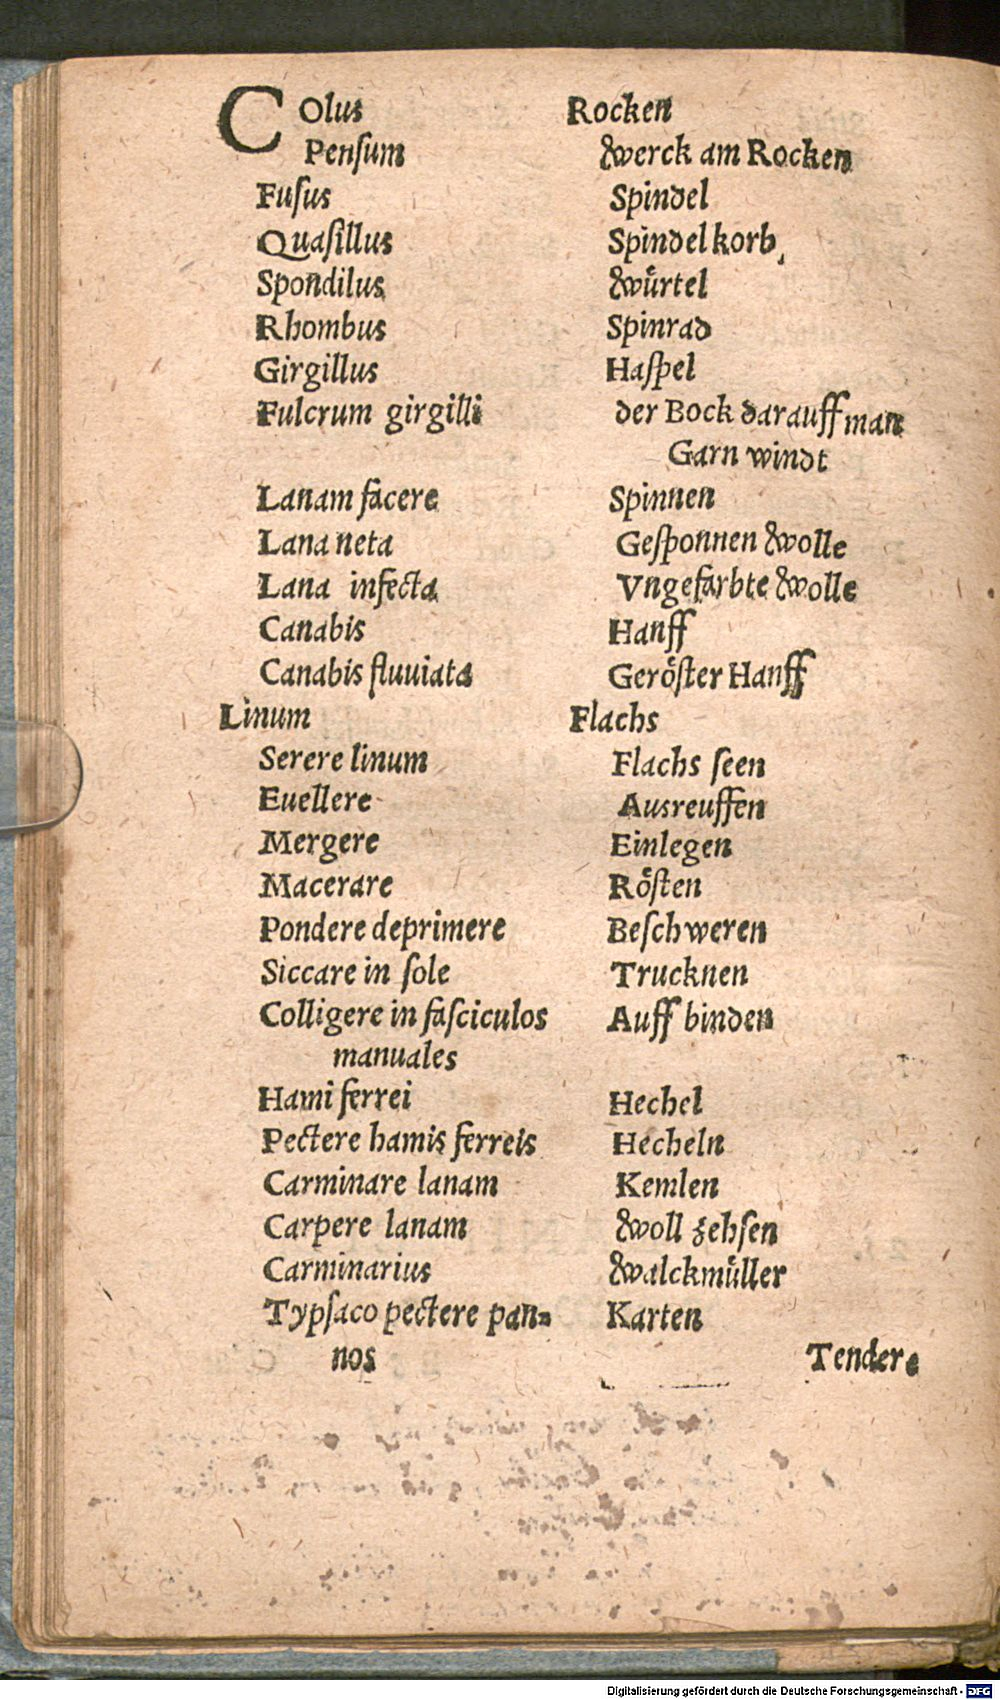 COlus Rocken
Pensum Werck am Rocken
Fusus Spindel
Quasillus Spindelkorb
Spondilus Würtel
Rhombus Spinrad
Girgillus Haspel
Fulcrum girgilli der Bock darauff man
Garn windt
Lanam facere Spinnen
Lana neta Gesponnen Wolle
Lana infecta Vngefarbte Wolle
Canabis Hanff
Canabis fluuiata Geröster Hanff
Linum Flachs
Serere linum Flachs seen
Euellere Ausreuffen
Mergere Einlegen
Macerare Rösten
Pondere deprimere Beschweren
Siccare in sole Trucknen
Colligere in fasciculos Auff binden
manuales
Hami ferrei Hechel
Pectere hamis ferreis Hecheln
Carminare lanam Kemlen
Carpere lanam Woll zehsen
Carminarius Walckmüller
Typsaco pectere pan= Karten
nos Tendere
Digitalisierung gefördert durch die Deutsche Forschungsgemeinschaft - DFG